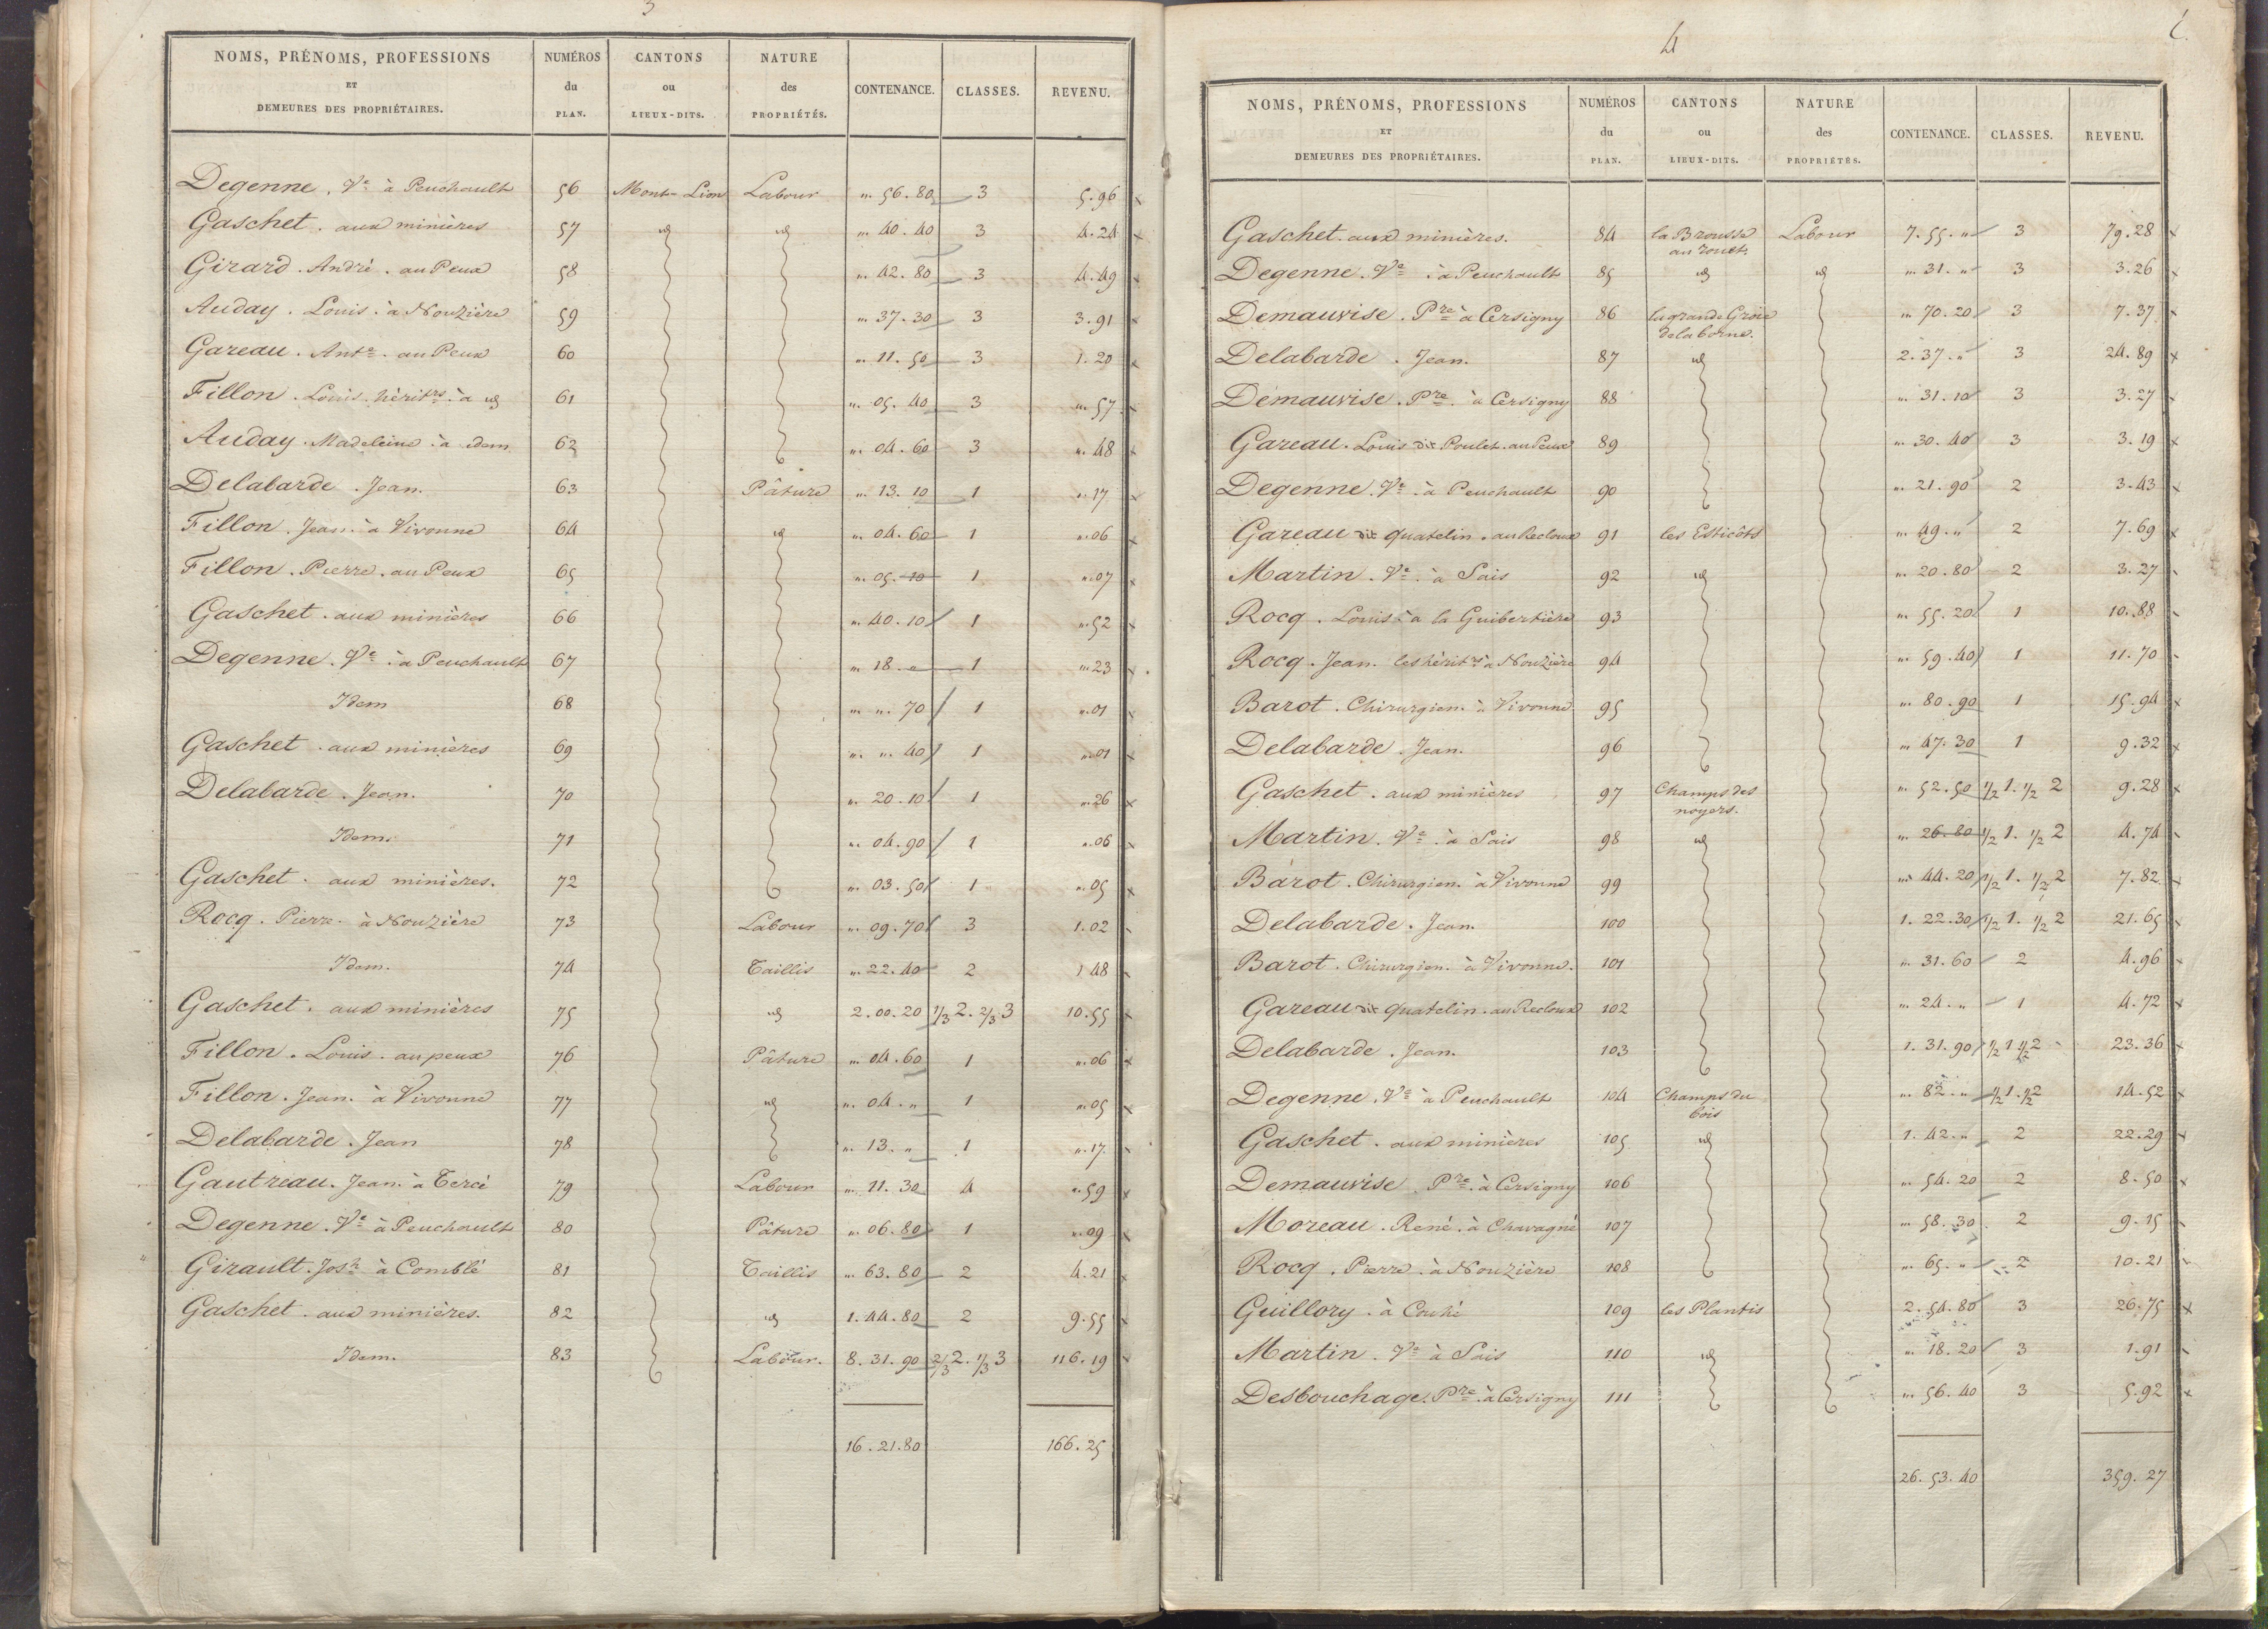 3
NOMS, PRÉNOMS, PROFESSIONS ET DEMEURES DES PROPRIÉTAIRES. NUMÉROS du PLAN. CANTONS ou LIEUX-DITS. NATURE des PROPRIÉTÉS. CONTENANCE. CLASSES. REVENU.
Degenne. Ve à Peuchault 56 Mont-Lion Labour " 56. 80 3 5.96
Gaschet. aux minières 57 id id " 40. 40 3 4.24
Girard. André. au Peux 58 " 42. 80 3 4.49
Auday. Louis. à Nouzière 59 " 37. 30 3 3.91
Gareau. Ante. au Peux 60 " 11. 50 3 1.20
Fillon. Louis. héritrs. à id 61 " 05. 40 3 " 57
Auday. Madeleine à idem 62 " 04. 60 3 " 48
Delabarde. Jean. 63 Pâture " 13. 10 1 " 17
Fillon. Jean. à Vivonne 64 id " 04. 60 1 " 06
Fillon. Pierre. au Peux 65 " 05. 10 1 " 07
Gaschet. aux minières 66 " 40. 10 1 " 52
Degenne. Ve à Peuchault 67 " 18. " 1 " 23
Idem 68 " ". 70 1 " 01
Gaschet. aux minières 69 " ". 40 1 " 01
Delabarde. Jean. 70 " 20. 10 1 " 26
Idem. 71 " 04. 90 1 " 06
Gaschet. aux minières. 72 " 03. 50 1 " 05
Rocq. Pierre. à Nouzière 73 Labour " 09. 70 3 1.02
Idem. 74 Taillis " 22. 40 2 1 48
Gaschet. aux minières 75 id 2. 00. 20 1/3 2. 2/3 3 10.55
Fillon. Louis. au peux 76 Pâture " 04. 60 1 " 06
Fillon. Jean. à Vivonne 77 id " 04. " 1 " 05
Delabarde. Jean 78 " 13. " 1 " 17
Gautreau. Jean. à Tercé 79 Labour " 11. 30 4 " 59
Degenne. Ve à Peuchault 80 Pâture " 06. 80 1 " 09
Girault. Josh à Comblé 81 Taillis " 63. 80 2 4.21
Gaschet. aux minières. 82 id 1. 44. 80 2 9.55
Idem. 83 Labour. 8. 31. 90 2/3 2. 1/3 3 116.19
16. 21. 80 166. 25
4
NOMS, PRÉNOMS, PROFESSIONS ET DEMEURES DES PROPRIÉTAIRES. NUMÉROS du PLAN. CANTONS ou LIEUX-DITS. NATURE des PROPRIÉTÉS. CONTENANCE. CLASSES. REVENU.
Gaschet. aux minières. 84 la Brousse au rouet. Labour 7. 55. " 3 79.28
Degenne. Ve à Peuchault 85 id id " 31. " 3 3.26
Demauvise. Pre à Cersigny 86 la grande Groie de la borne. " 70. 20 3 7.37
Delabarde. Jean. 87 id 2. 37. " 3 24.89
Demauvise. Pre. à Cersigny 88 " 31. 10 3 3.27
Gareau. Louis dit Poulet. au Peux 89 " 30. 40 3 3.19
Degenne. Ve à Peuchault 90 " 21. 90 2 3.43
Gareau dit quatelin. au Recloux 91 les Esticôts " 49. " 2 7.69
Martin. Ve. à Sais 92 id " 20. 80 2 3.27
Rocq. Louis à la Guibertière 93 " 55. 20 1 10.88
Rocq. Jean. les héritrs à Nouzière 94 " 59. 40 1 11.70
Barot. Chirurgien. à Vivonne 95 " 80. 90 1 15.94
Delabarde. Jean. 96 " 47. 30 1 9.32
Gaschet. aux minières 97 Champs des noyers. " 52. 50 1/2 1. 1/2 2 9.28
Martin. Ve. à Sais 98 id " 26. 80 1/2 1. 1/2 2 4.74
Barot. Chirurgien. à Vivonne 99 " 44. 20 1/2 1. 1/2 2 7.82
Delabarde. Jean. 100 1. 22. 30 1/2 1. 1/2 2 21.65
Barot. Chirurgien. à Vivonne. 101 " 31. 60 2 4.96
Gareau dit quatelin. au Recloux 102 " 24. " 1 4.72
Delabarde. Jean. 103 1. 31. 90 1/2 1 1/2 2 23.36
Degenne. Ve à Peuchault 104 Champs du bois " 82. " 1/2 1. 1/2 2 14.52
Gaschet. aux minières 105 id 1. 42. " 2 22.29
Demauvise. Pre. à Cersigny 106 " 54. 20 2 8.50
Moreau. René. à Chavagné 107 " 58. 30 2 9.15
Rocq. Pierre. à Nouzière 108 " 65. " 2 10.21
Guillory. à Couhé 109 les Plantis 2. 54. 80 3 26.75
Martin. Ve à Sais 110 id " 18. 20 3 1.91
Desbouchage. Pre à Cersigny 111 " 56. 40 3 5.92
26. 53. 40 359. 27